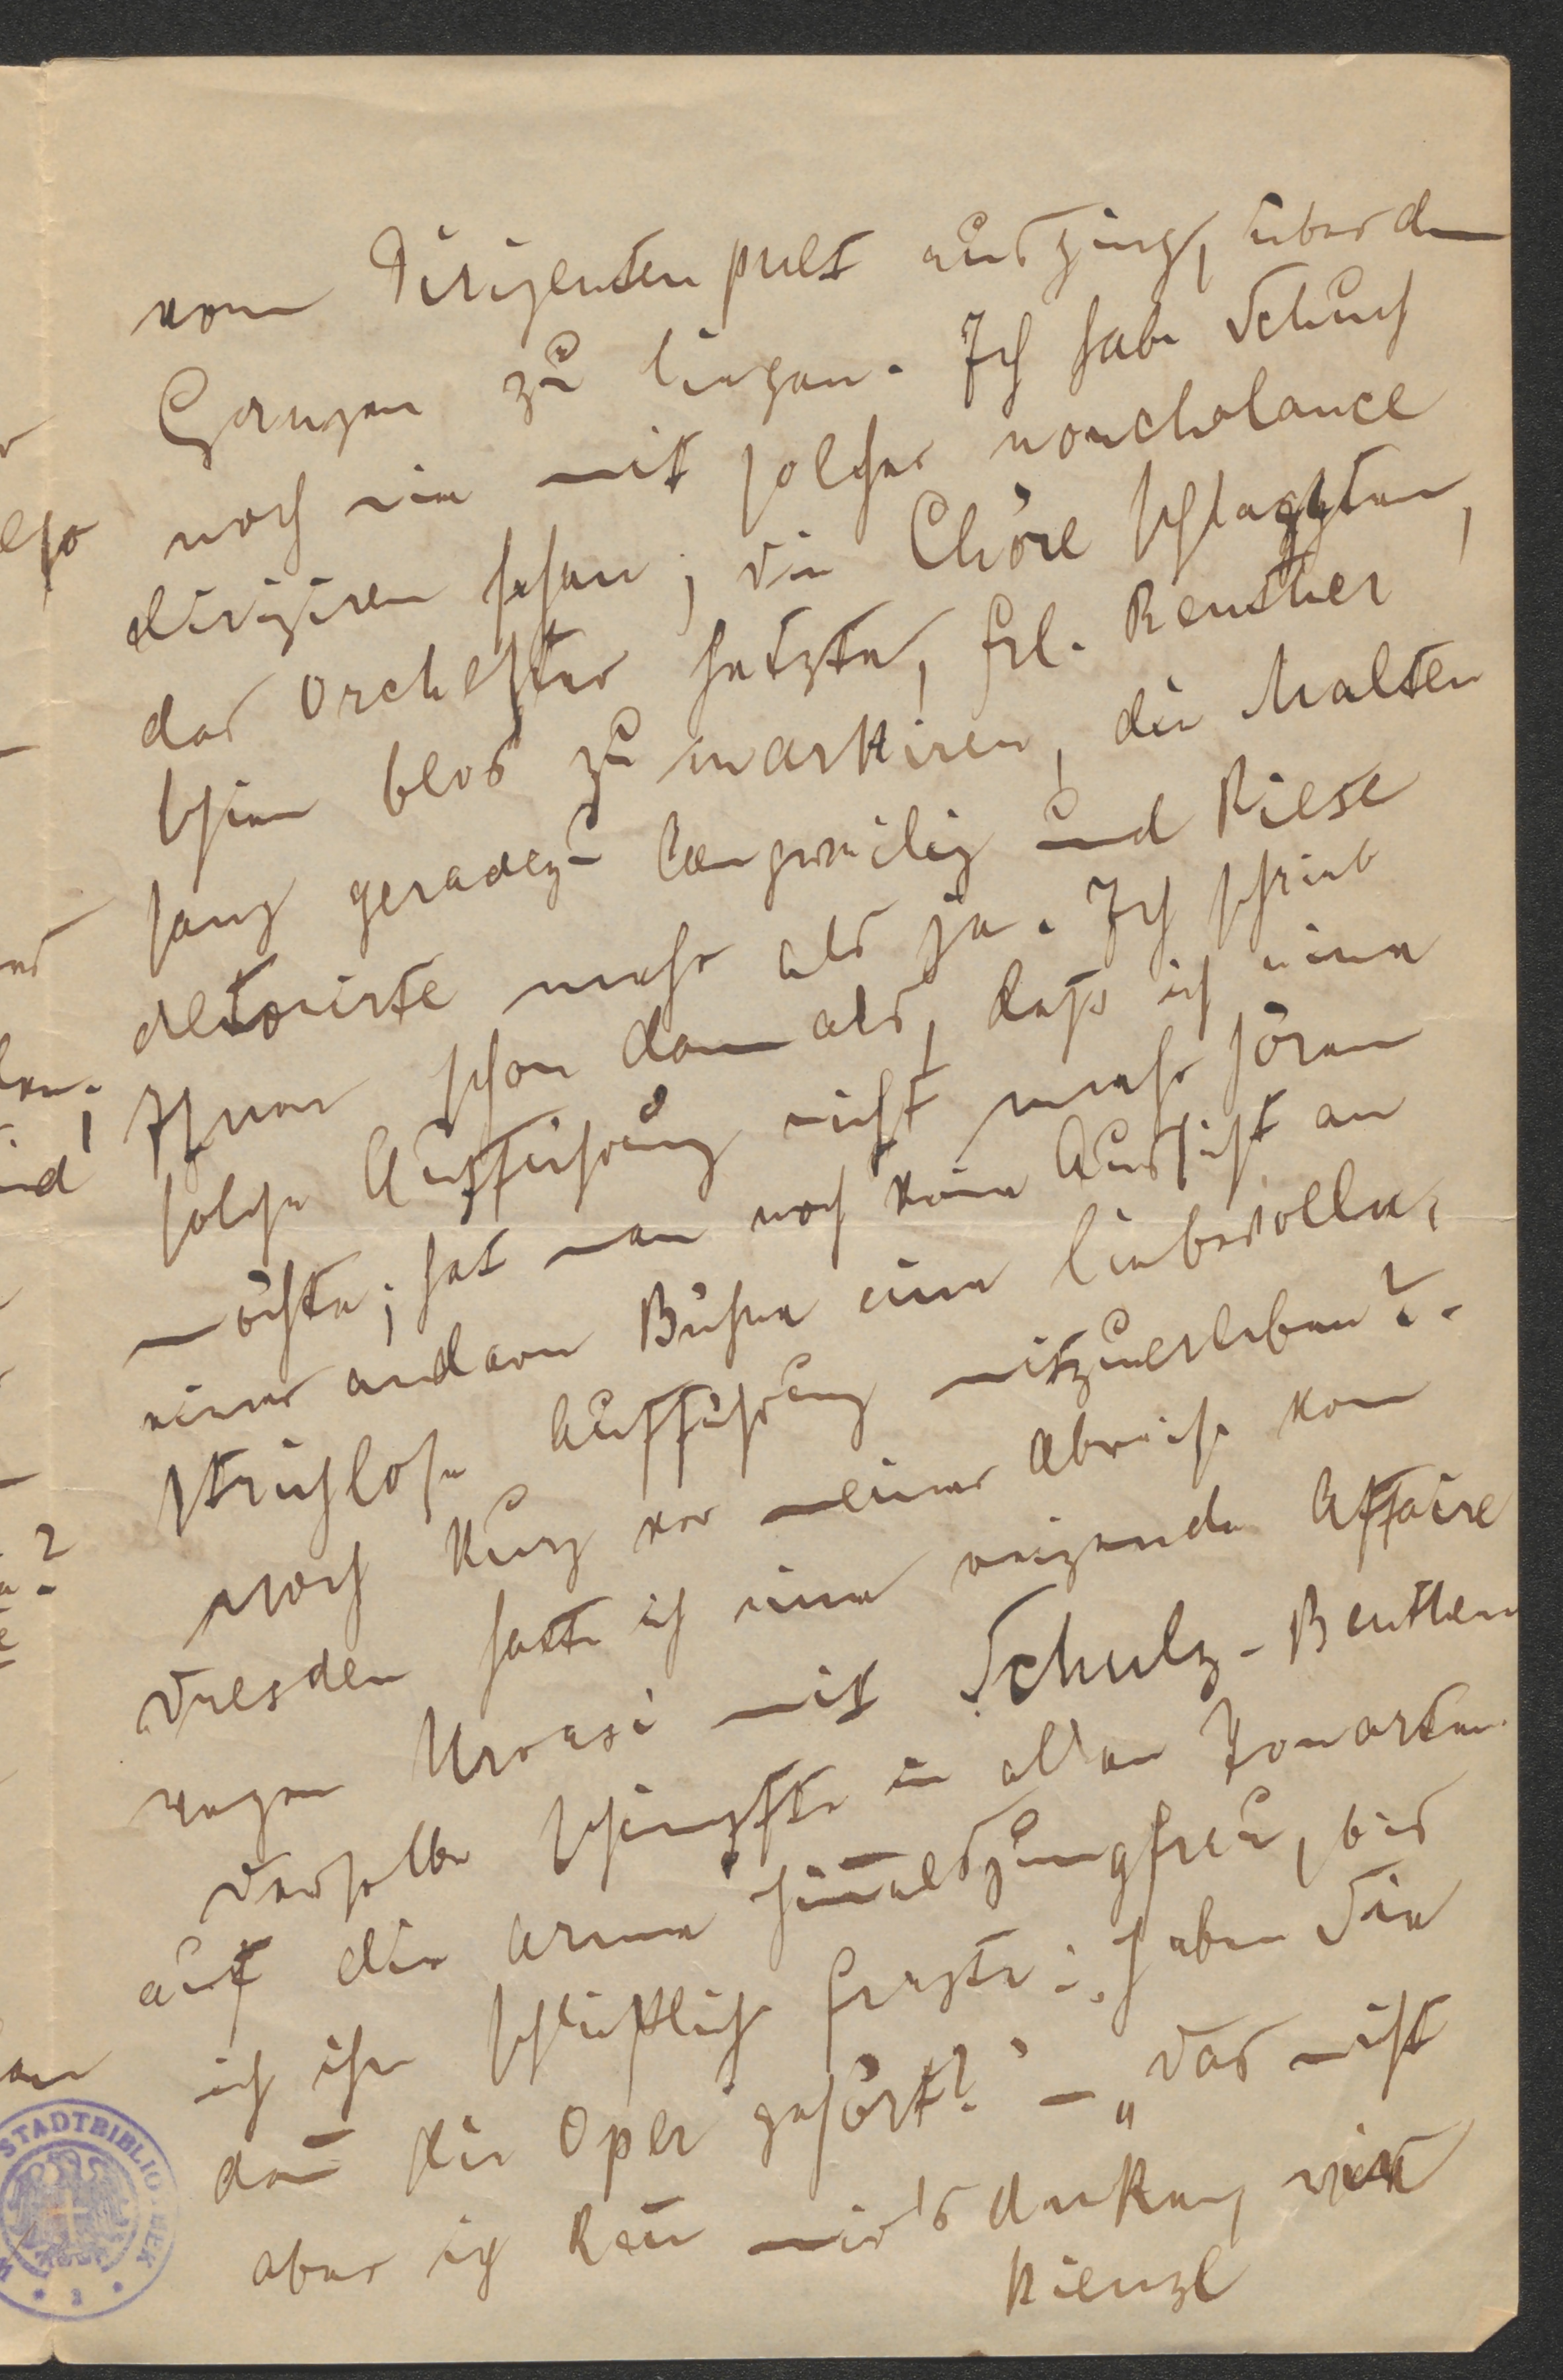 vom Dirigentenpult ausging, über dem
Ganzen zu liegen. Ich habe Schuch
noch nie mit solcher nonchalance
dirigiren sehen; die Chöre schleppten,
das Orchester hetzte, Frl. Reuther
schien blos zu markiren, die Malten
sang geradezu langweilig und Riese
detonirte mehr als je. Ich schrieb
Ihnen schon damals, daß ich eine
solche Aufführung nicht mehr hören
möchte; hat man noch keine Aussicht an
einer andern Bühne eine liebevolle,
strichlose Aufführung mitzuerleben?.
Noch kurz vor meiner Abreise von
Dresden hatte ich eine reizende Affaire
wegen Urvasi mit Schulz-Beuthen
Derselbe schimpfte in allen Tonarten
auf die arme Him̅elsjungfrau, bis
ich ihn schließlich fragte: „Haben Sie
den̅ die Oper gehört?" – „Das nicht
aber ich kan̅ mir's denken, wie
Kienzl
STADTBIBLIO EK